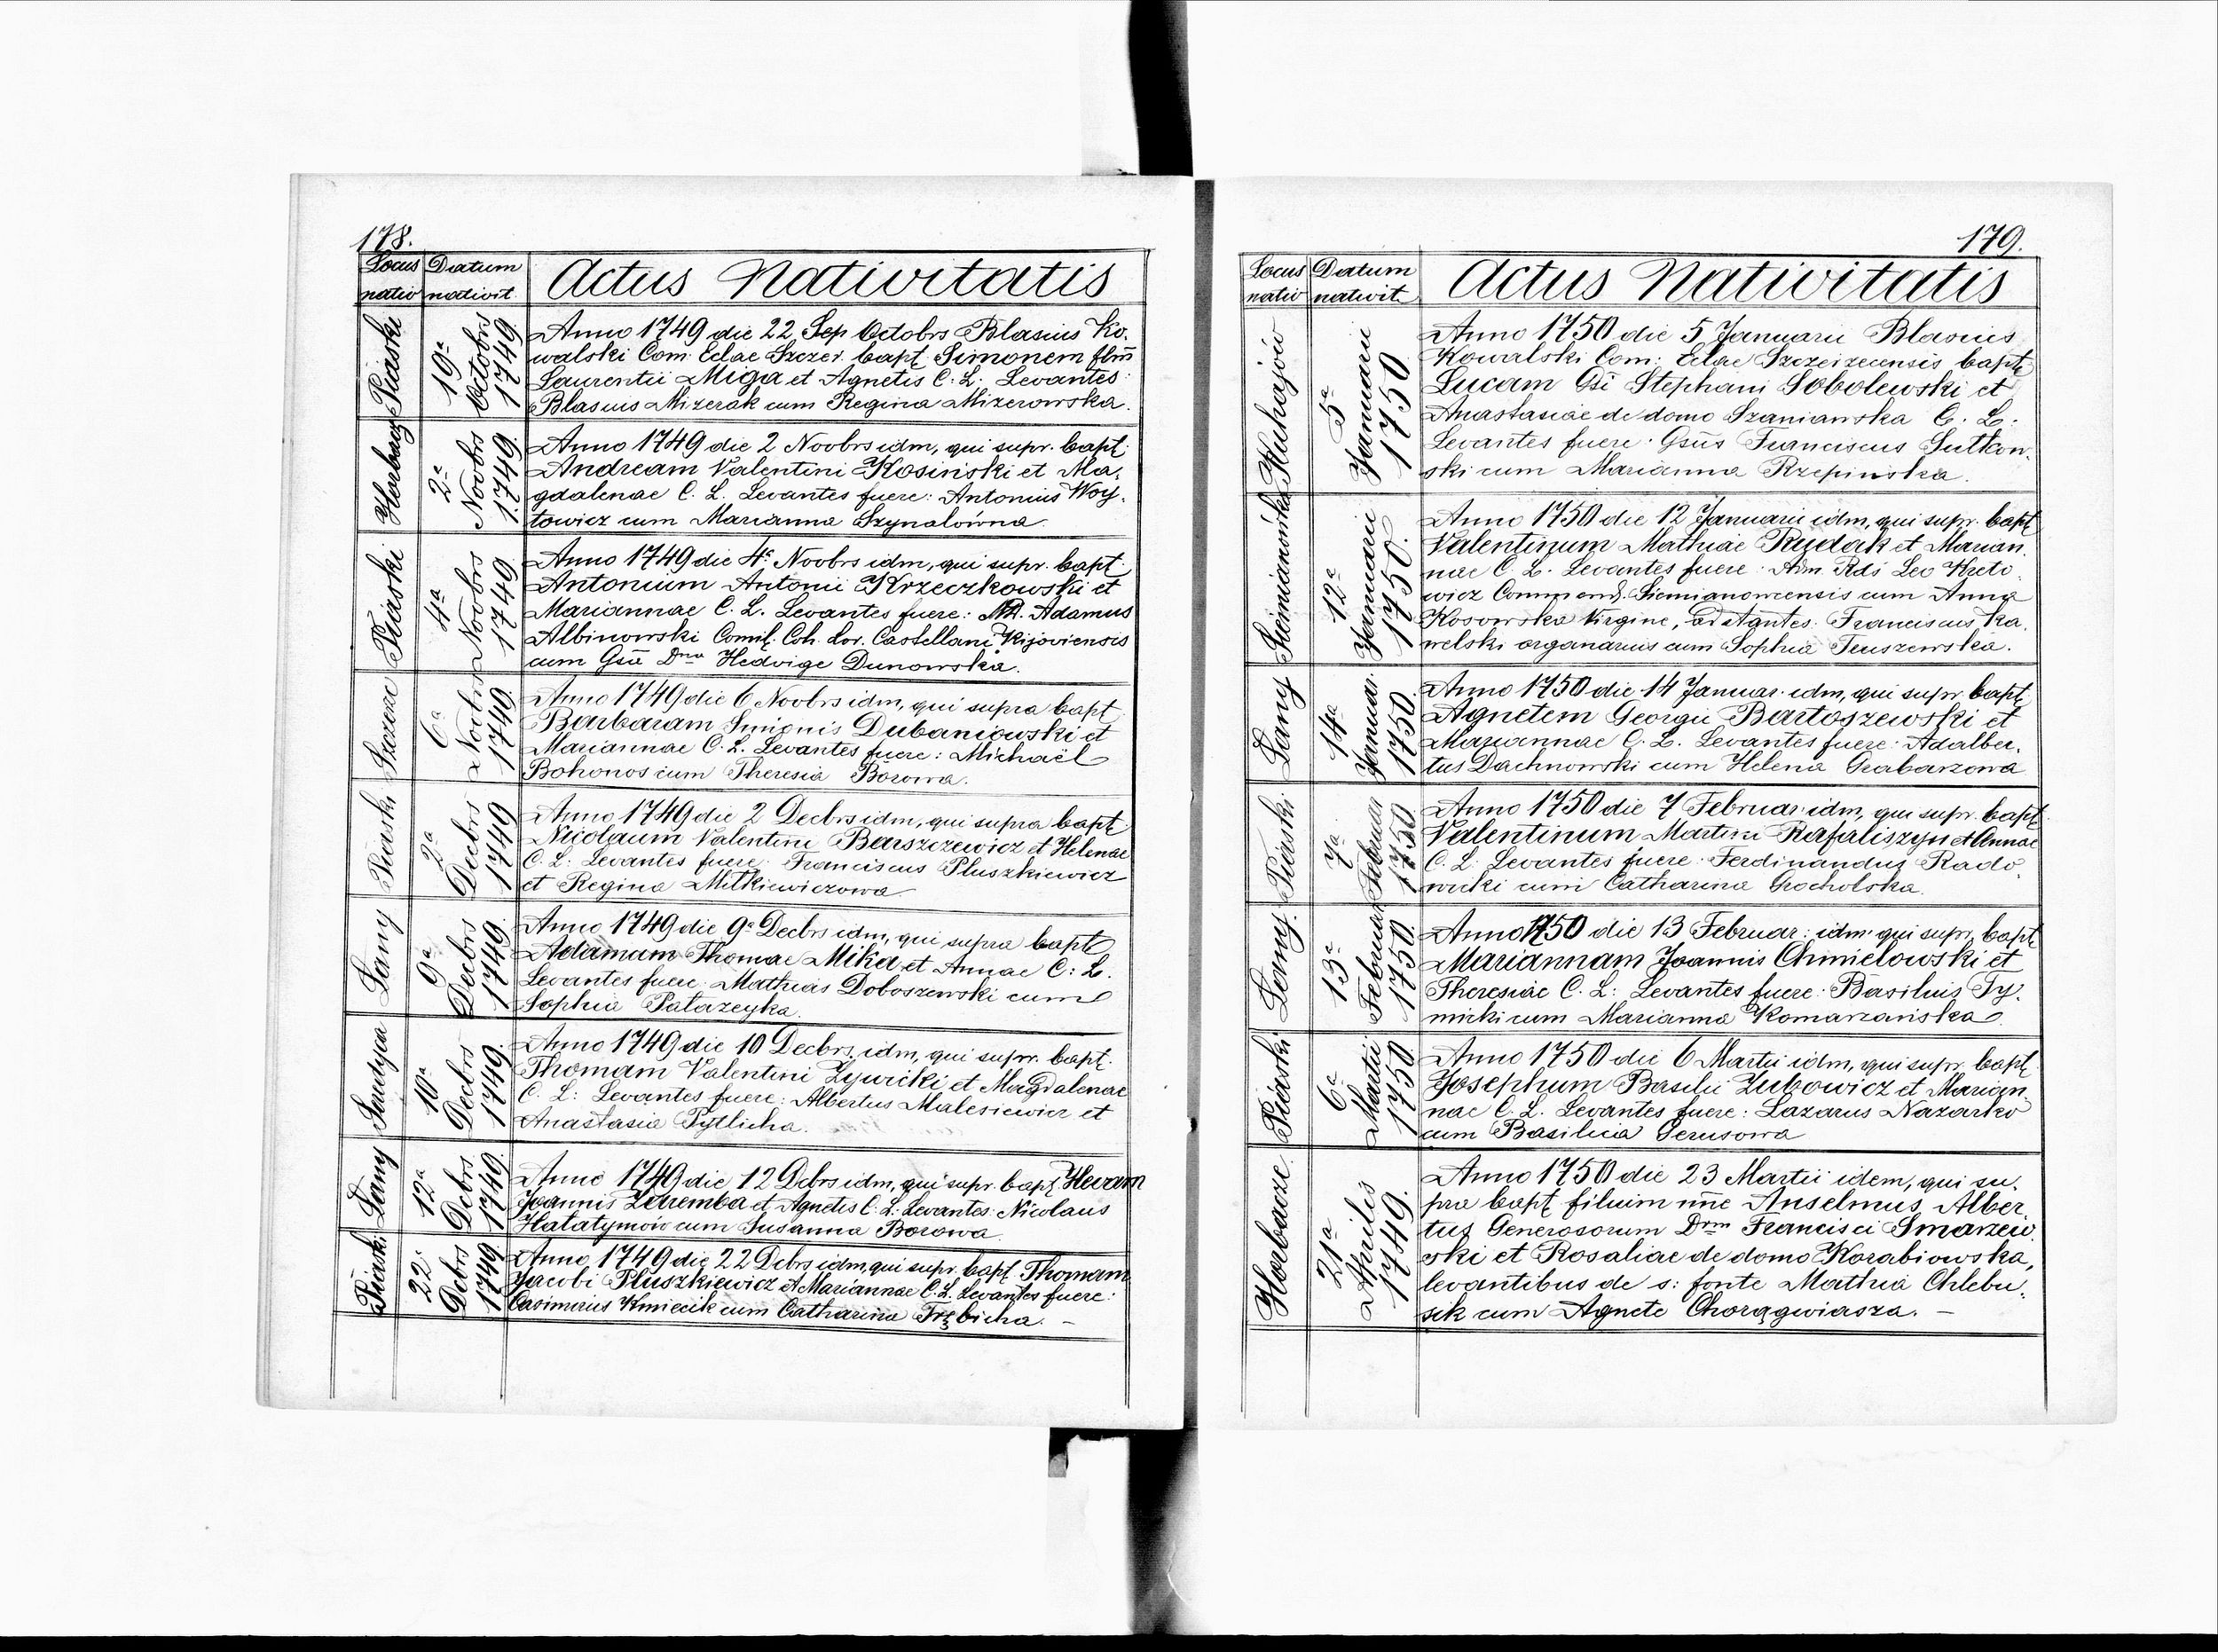 178.
Locus nativ
Datum nativit.
Actus Nativitatis
Piaski
19ª Octobrs 1749
Anno 1749 die 22 Sep Octobrs Blasius Ko.
walski Com: Eclae Szczer. bapt. Simonem flm̄
Laurentii Miga et Agnetis C. L. Levantes:
Blasius Mizerak cum Regina Mizerowska.
Horbacz
2ª Novbrs 1749.
Anno 1749 die 2 Novbrs idm, qui supr. bapt.
Andream Valentini Kosiński et Ma.
gdalenae C. L. Levantes fuere: Antonius Woy.
towicz cum Marianna Szynalówna.
Piaski
4ª Novbrs 1749.
Anno 1749 die 4ª Novbrs idm, qui supr. bapt.
Antonium Antonii Krzeczkowski et
Mariannae C. L. Levantes fuere: M. Adamus
Albinowski Comil. Coh. Lor. Castellani Kijoviensis
cum Gsa Dna Hedvige Dunowska.
Szczerz
6ª Novbrs 1749.
Anno 1749 die 6 Novbrs idm, qui supra bapt.
Barbaram Simonis Dubaniowski et
Mariannae C. L. Levantes fuere: Michaël
Bohonos cum Theresia Borowa.
Piaski
2ª Decbrs 1749
Anno 1749 die 2 Decbrs idm, qui supra bapt.
Nicolaum Valentini Barszczewicz et Helenae
C. L: Levantes fuere: Franciscus Pluszkiewicz
et Regina Mitkiewiczowa
Łany
9ª Decbrs 1749.
Anno 1749 die 9ª Decbrs idm, qui supra bapt.
Adamam Thomae Mika et Annae C: L.
Levantes fuere: Mathias Doboszewski cum
Sophia Patazeyka.
Serdyca
10ª Decbrs 1749.
Anno 1749 die 10 Decbrs idm, qui supr. bapt.
Thomam Valentini Zywicki et Magdalenae
C. L: Levantes fuere: Albertus Malesiewicz et
Anastasia Pytlicha.
Łany
12ª Debrs 1749.
Anno 1749 die 12 Debrs idm, qui supr. bapt. Hevam
Joannis Zaremba et Agnetis C. L: Levantes: Nicolaus
Hałatymow cum Susanna Borowa.
Piaski
22ª Debrs 1749
Anno 1749 die 22 Debrs idm, qui supr. bapt. Thomam
Jacobi Pluszkiewicz et Mariannae C. L. Levantes fuere:
Casimirus Kmiecik cum Catharina Trębicha. –
179.
Locus nativ
Datum nativit.
Actus Nativitatis
Kuhajów
5ª Januarii 1750
Anno 1750 die 5 Januarii Blasius
Kowalski Com: Eclae Szczeizecensis bapt.
Lucam Gsi Stephani Sobolewski et
Anastasiae de domo Szaniawska C. L:
Levantes fuere: Gsus Franciscus Sutkow.
ski cum Marianna Rzepinska.
Siemianówka
12ª Januarii 1750.
Anno 1750 die 12 Januarii idm, qui supr. bapt.
Valentinum Mathiae Rudak et Marian.
nae C. L. Levantes fuere: Adm. Rds Leo Hreto.
wicz Commend. Siemianowcensis cum Anna
Kosowska Virgine, adstantes: Franciscus Ka.
welski organarius cum Sophia Teuszewska.
Łany
14ª Januar. 1750.
Anno 1750 die 14 Januar. idm, qui supr. bapt.
Agnetem Georgii Bartoszewski et
Mariannae C. L. Levantes fuere: Adalber.
tus Dachnowski cum Helena Grabarzowa
Piaski
7ª Februar 1750
Anno 1750 die 7 Februar: idm, qui supr. bapt.
Valentinum Martini Rafaliszyn et Annae
C. L: Levantes fuere: Ferdinandus Rado.
wicki cum Catharina Grocholska.
Łany.
13ª Februar 1750.
Anno 1750 die 13 Februar: idm: qui supr. bapt.
Mariannam Joannis Chmielowski et
Theresiae C. L: Levantes fuere: Basilius Ty.
micki cum Marianna Komarzańska.
Piaski
6ª Martii 1750
Anno 1750 die 6 Martii idm, qui supr. bapt.
Josephum Basilii Zubowicz et Marian.
nae C. L. Levantes fuere: Lazarus Nazarko
cum Basilicia Gerusowa
Horbacze.
21ª Aprilis 1749.
Anno 1750 die 23 Martii idem, qui su.
pra bapt. filium nn̄e Anselmus, Alber.
tus Generosorum Drm Francisci Smarzew.
ski et Rosaliae de domo Korabiowska,
levantibus de s: fonte Mathia Chlebu.
sek cum Agnete Chorągwiasza. –